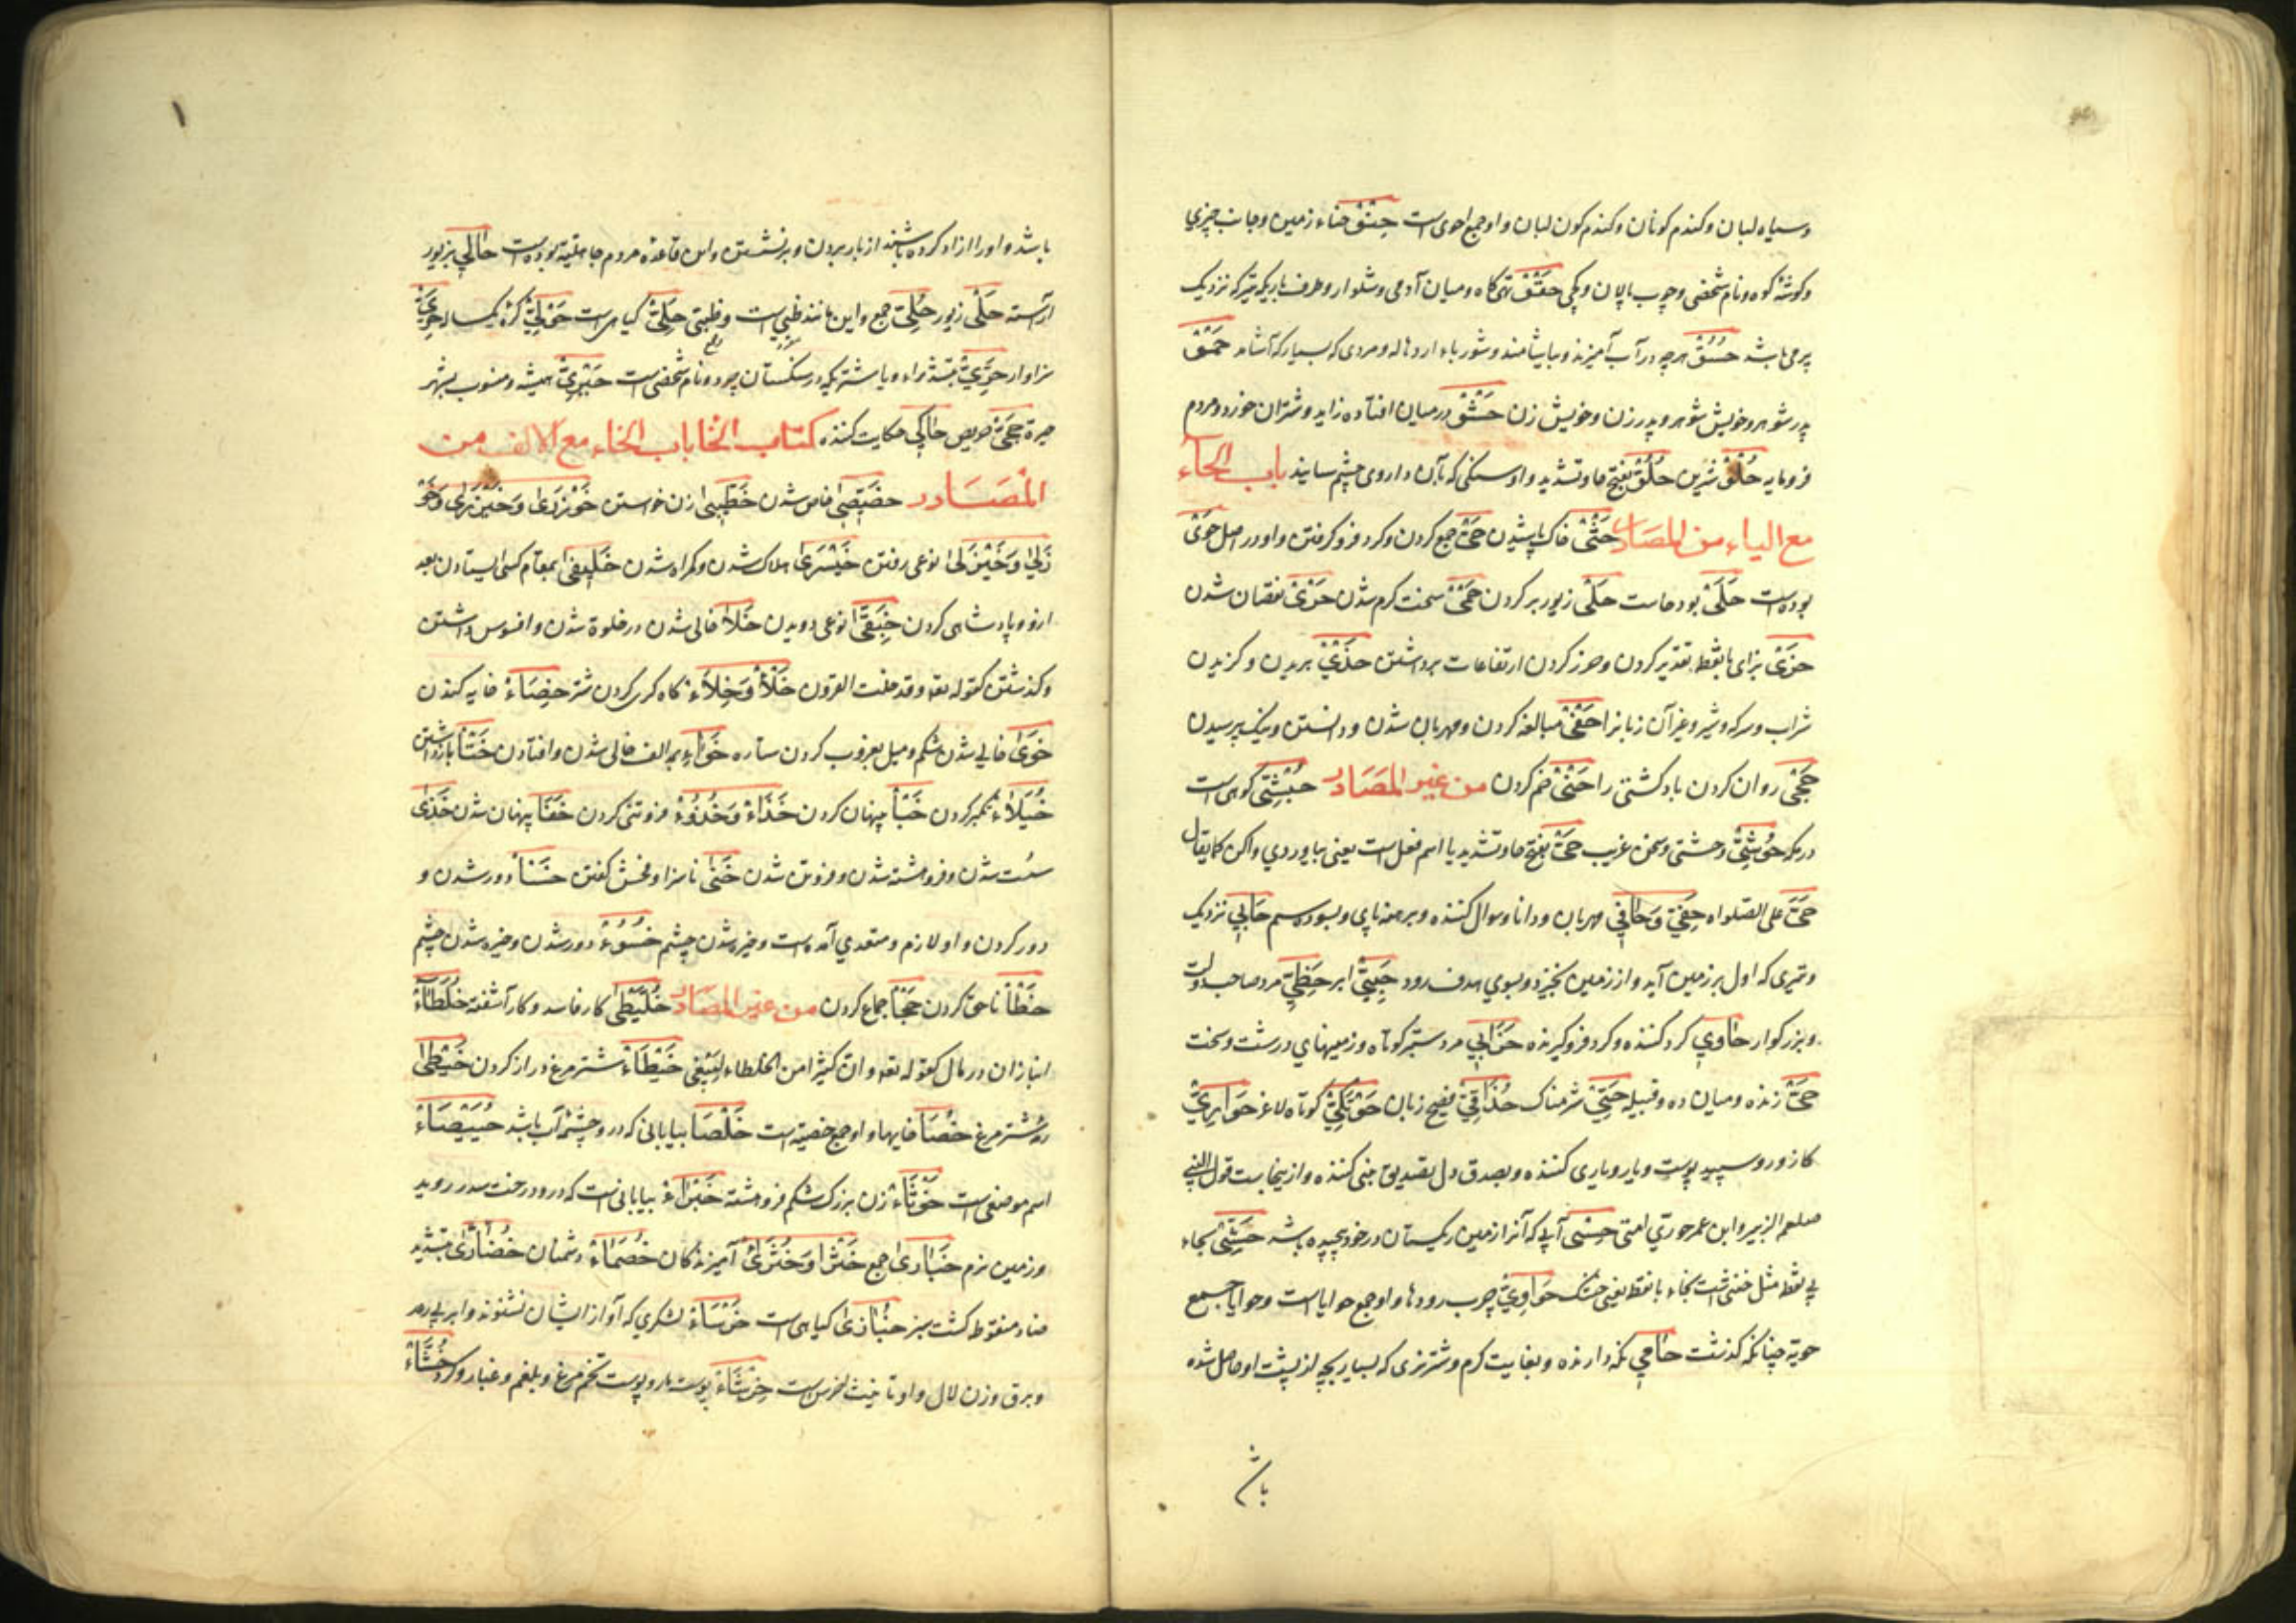 وسیاه لبان وکندم کونان وکندم کون لبان واو جمع احوی است حِنْقْ حناء زمین وجانب چیزی
وکوشهٔ کوه ونام شخصی وچوب پالان وکجی حَقْقْ تهی کاه ومیان آدمی وشلوار وطرف باریکه تیر که نزدیک
پر می باشد حُسُقْ هرچه در آب آمیزند وبیاشامند وشوربا واردهاله ومردی که بسیار آشامد حَمْقْ
پدر شوهر وخویش شوهر وپدر زن وخویش زن حَشْقْ در میان افتاده زاید وشتران خورد ومردم
فرومایه حُلْقْ شرین حُلُقْ بفتح حا وتشدید واو سنکی که بآن داروی چشم سایند باب الحاء
مع الیاء من المصادر حَثْیْ خاک پاشیدن حَیّْ جمع کردن وکرد فرو کرفتن واو در اصل حَوْیْ
بوده است حَلَیْ بود حاست حَلْیْ زیور بر کردن حَمْیْ سخت کرم شدن حَرْیْ نقصان شدن
حَزْیْ بزای با نقطه تقدیر کردن وحرز کردن ارتفاعات برداشتن حَذْیْ بریدن وکزیدن
شراب وسرکه وشیر وغیر آن زبانرا حَفْیْ مبالغه کردن ومهربان شدن ودانستن ونیک پرسیدن
حَجْیْ روان کردن باد کشتی را حَنْیْ خم کردن من غیر المصادر حُبْشِیّ کوهی است
در مکه حُوشِیّ وحشی وسخن غریب حَیَّ بفتح حا وتشدید یا اسم فعل است یعنی بیا وردی واکن کما یقال
حَیَّ علی الصلواه حَفِیّ وَحَافِی مهربان ودانا وسوال کننده وبرهنه پای وبسوده سم حَابِی نزدیک
وتیری که اول بر زمین آید واز زمین بخیزد وبسوی هدف رود حَبِیّ ابر حَظِیّ مرد صاحب دولت
وبزرکوار حَاوِی کرد کننده وکرد فرو کیرنده حَزَابِی مرد سبتر کوتاه وزمینهای درشت وسخت
حَیّ زنده ومیان ده وقبیله حَیِیّ شرمناک حُذَاقِیّ فصیح زبان حَوْتَکِیّ کوتاه لاغر حَوَارِیّ
کازور وسپید پوست ویار ویاری کننده وبصدق دل تصدیق نبی کننده واز ینجاست قول النبی
صلعم الزبیر وابن عمر حوریّ امتی حِسْی آبی که آنرا از زمین ریکستان در خود پیچیده باشد حَنْثَی بحاء
بی نقطه مثل خنثی است بخاء با نقطه یعنی خشک حَوَاوِی چوب رودها واو جمع حوایا است وحوایا جمع
حویّه چنانکه کذشت حَامِی نکه دارنده وبغایت کرم وشتر نری که بسیار بچه از پشت او حاصل شده
باش
باشد واورا ازاد کرده باشند از بار بردن وبر نشستن واین قاعدهٔ مردم جاهلیة بوده است حَالِی بزیور
آراسته حَلْی زیور حُلِیّ جمع واین مانند ظبی است وظبی حَلِیّ کیاهی است حَوْلِیّ کرهٔ یکساله حَرِیّ
سزاوار حَرِّیّ بتشدید راء ویا شتریکه در سنکستان بود ونام شخصی است حَیْرِیّ همیشه ومنسوب بشهر
حیرة حَجِیّ حریص حَاکِی حکایت کننده کتاب الخا باب الخاء مع الالف من
المصادر خِصِّیصَی خاص شدن خِطِّیبَی زن خواستن خَوْزَرَی وَخَیْزَرَی وَخَوْ
زَلَی وَخَیْزَلَی نوعی رفتن خَیْسَرَی هلاک شدن وکمراه شدن خِلِّیفَی بمقام کسی ایستادن بعد
ازو وپادشاهی کردن خِبَقَّی نوعی دویدن خَلَا خالی شدن در خلوة شدن وافسوس داشتن
وکذشتن کقوله تعه وقد خلت القرون خَلْأْ وَخِلَاءْ کاه کری کردن شتر خِصَاءْ خایه کندن
خَوَی خالی شدن شکم ومیل بغروب کردن ستاره خَوَاءْ بمد الف خالی شدن وافتادن خَتْأْ باز داشتن
خُیَلَاءْ تکبر کردن خَبْأْ پنهان کردن خَذَاءْ وَخُذُوءْ فروتنی کردن خَفَا پنهان شدن خَذَی
سست شدن وفروهشته شدن وفروتن شدن خَنَی ناسزا وفحش کفتن خَسْأْ دور شدن و
دور کردن واو لازم ومتعدی آمده است وخیره شدن چشم خُسُوءْ دور شدن وخیره شدن چشم
خَطَأْ ناحق کردن خَجْأْ جماع کردن من غیر المصادر خُلَّیْطَی کار فاسد وکار آشفته خُلَطَاءْ
انبازان در مال کقوله تعه وان کثیرا من الخلطاء لیبغی خَیْطَاءْ شتر مرغ دراز کردن خَیْطَی
رمهٔ شتر مرغ خُصَا خایها واو جمع خصیه است خَلْصَا بیابانی که درو چشمهٔ آب باشد خُیَیْصَاءْ
اسم موضعی است خَوْثَاءْ زن بزرک شکم فروهشته خَبْرَاءْ بیابانی است که درو درخت سدر روید
وزمین نرم خَبَارَی جمع خَثْرَا وَخَثْرَی آمیزندکان خُصَمَاءْ دشمنان خُضَّارَی بتشدید
ضاد منقوطه کشت سبز خُبَّازَی کیاهی است خَرْسَاءْ لشکری که آواز ایشان نشنوند وابر بی رعد
وبرق وزن لال واو تانیث اخرس است خِرْشَاءْ پوست مار وپوست تخم مرغ وبلغم وغبار وکرد خُشَّاءْ